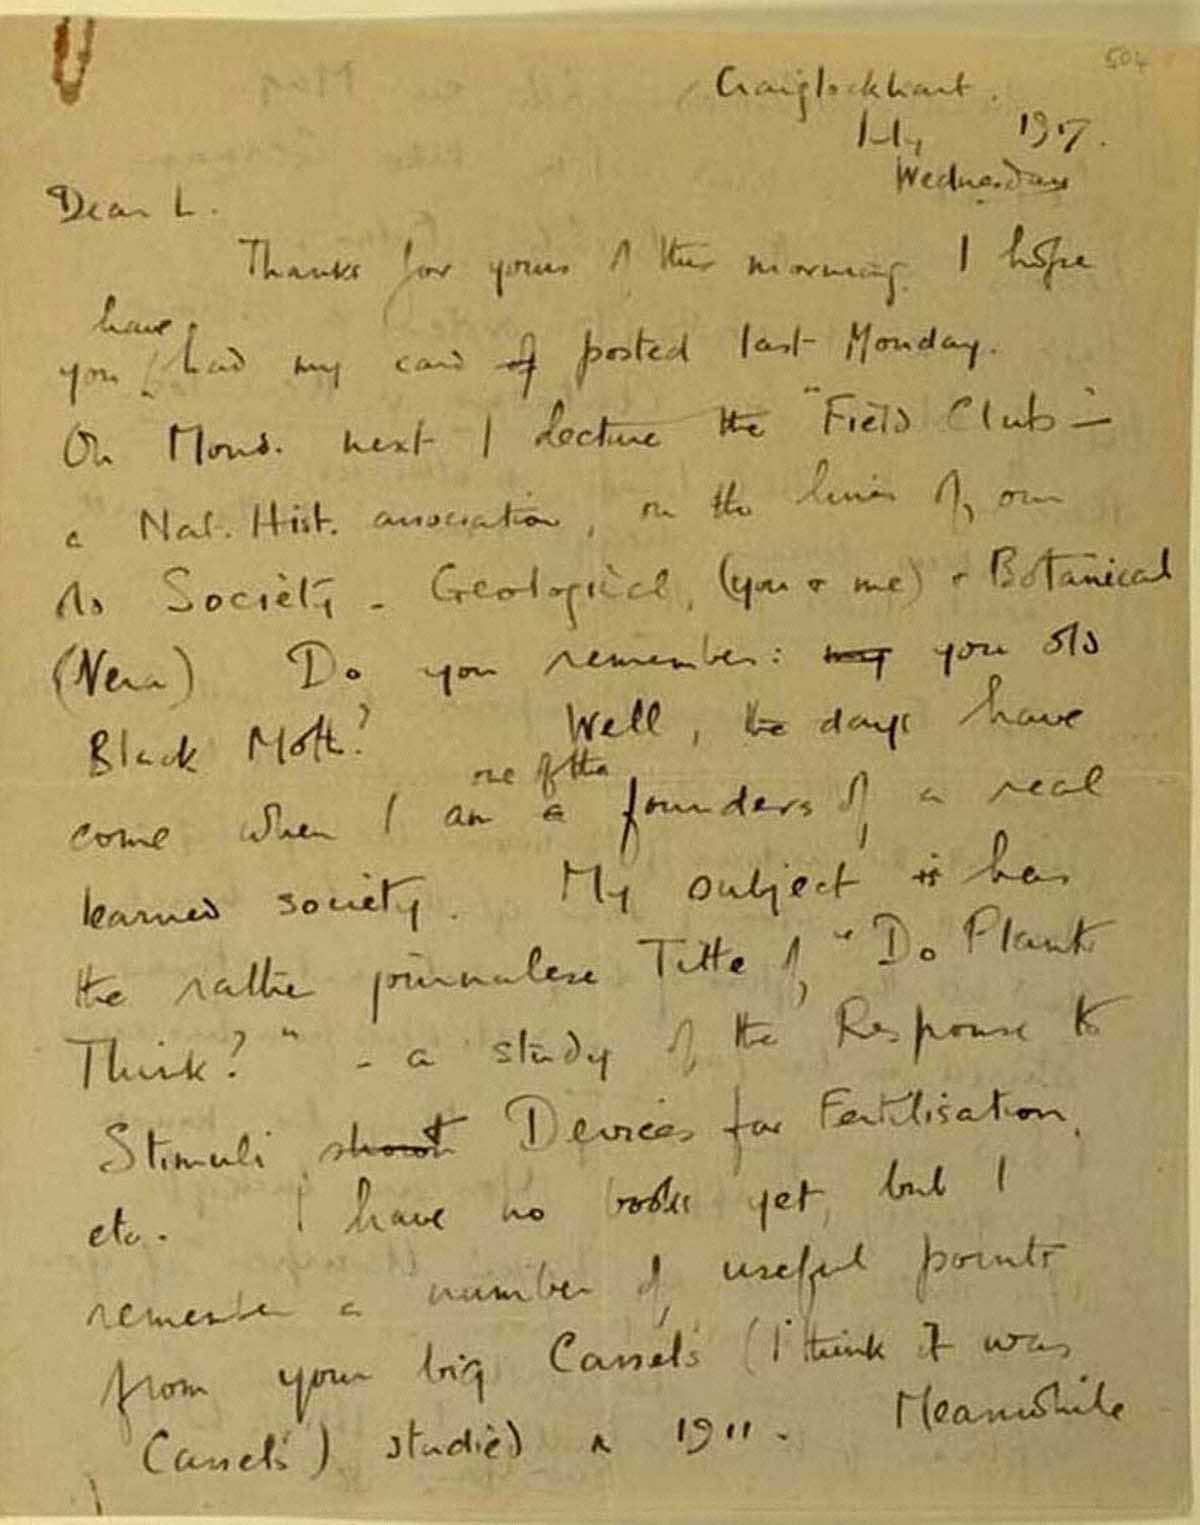 504
Craiglockhart.
July 1917.
Wednesday
Dear L.
Thanks for yours of this morning. I hope
have
you had my card of posted last Monday.
On Mond. next I lecture the "Field Club –
a Nat. Hist. association, on the lines of our
old Society – Geological, (you & me) & Botanical
(Vera) Do you remember: my you old
Black Moth? Well, the days have
one of the
come when I am a founders of a real
learned society. My subject is has
the rather journalese Title of "Do Plants
Think?" – a study of the Response to
Stimuli Devices for Fertilisation,
etc. I have no books yet, but I
remember a number of useful points
from your big Cassels (I think it was
Cassels) studied in 1911. Meanwhile